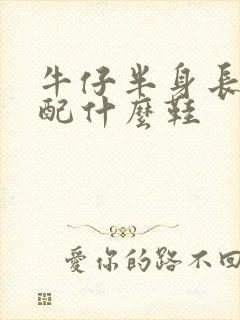 牛仔半身長
配什麼鞋
愛你的路不回